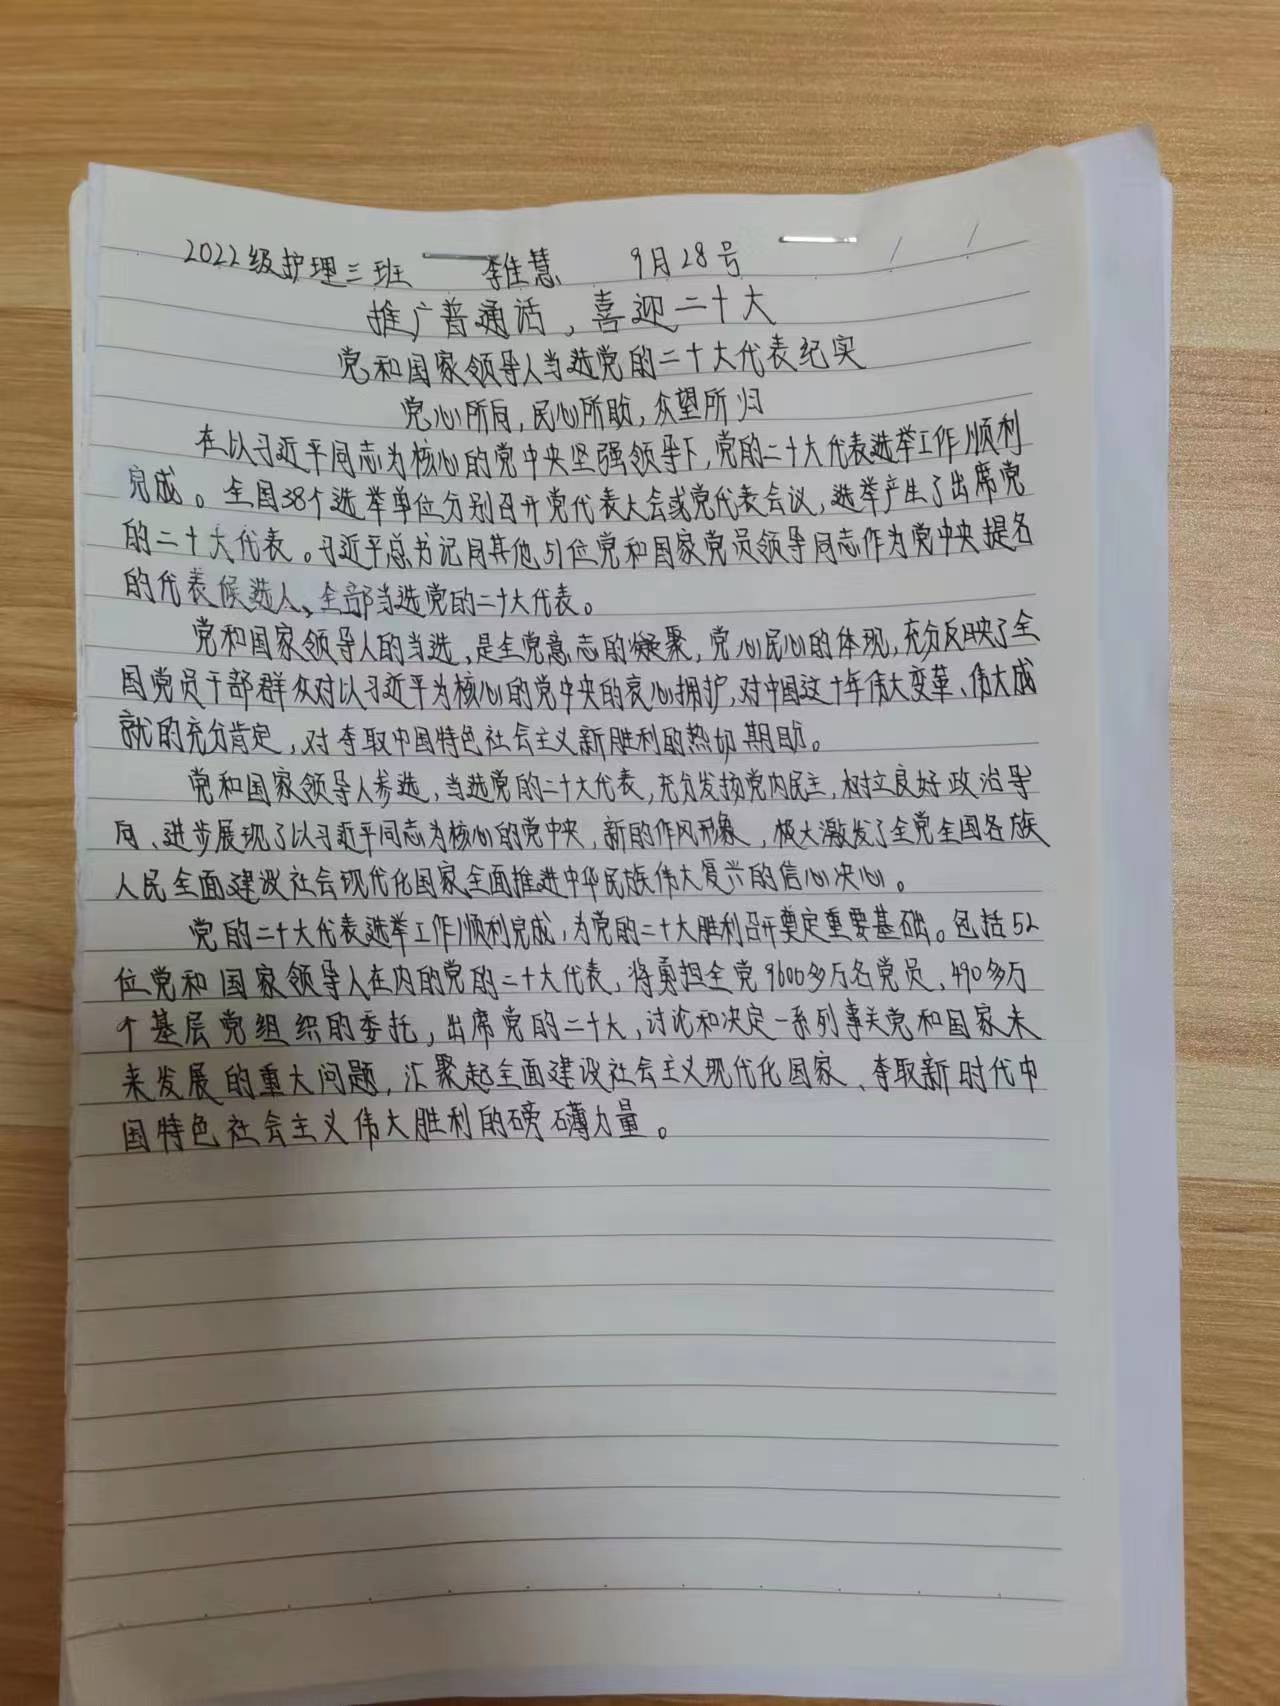 2022级护理三班 李佳慧 9月28号
推广普通话，喜迎二十大
党和国家领导人当选党的二十大代表纪实
党心所向，民心所盼，众望所归
在以习近平同志为核心的党中央坚强领导下，党的二十大代表选举工作顺利
完成。全国38个选举单位分别召开党代表大会或党代表会议，选举产生了出席党
的二十大代表。习近平总书记同其他51位党和国家党员领导同志作为党中央提名
的代表候选人、全部当选党的二十大代表。
党和国家领导人的当选，是全党意志的凝聚，党心民心的体现，充分反映了全
国党员干部群众对以习近平为核心的党中央的衷心拥护，对中国这十年伟大变革、伟大成
就的充分肯定，对夺取中国特色社会主义新胜利的热切期盼。
党和国家领导人参选，当选党的二十大代表，充分发扬党内民主，树立良好政治导
向、进步展现了以习近平同志为核心的党中央，新的作风形象，极大激发了全党全国各族
人民全面建设社会现代化国家全面推进中华民族伟大复兴的信心决心。
党的二十大代表选举工作顺利完成，为党的二十大胜利召开奠定重要基础。包括52
位党和国家领导人在内的党的二十大代表，将肩担全党9600多万名党员，490多万
个基层党组织的委托，出席党的二十大，讨论和决定一系列事关党和国家未
来发展的重大问题，汇聚起全面建设社会主义现代化国家、夺取新时代中
国特色社会主义伟大胜利的磅礴力量。